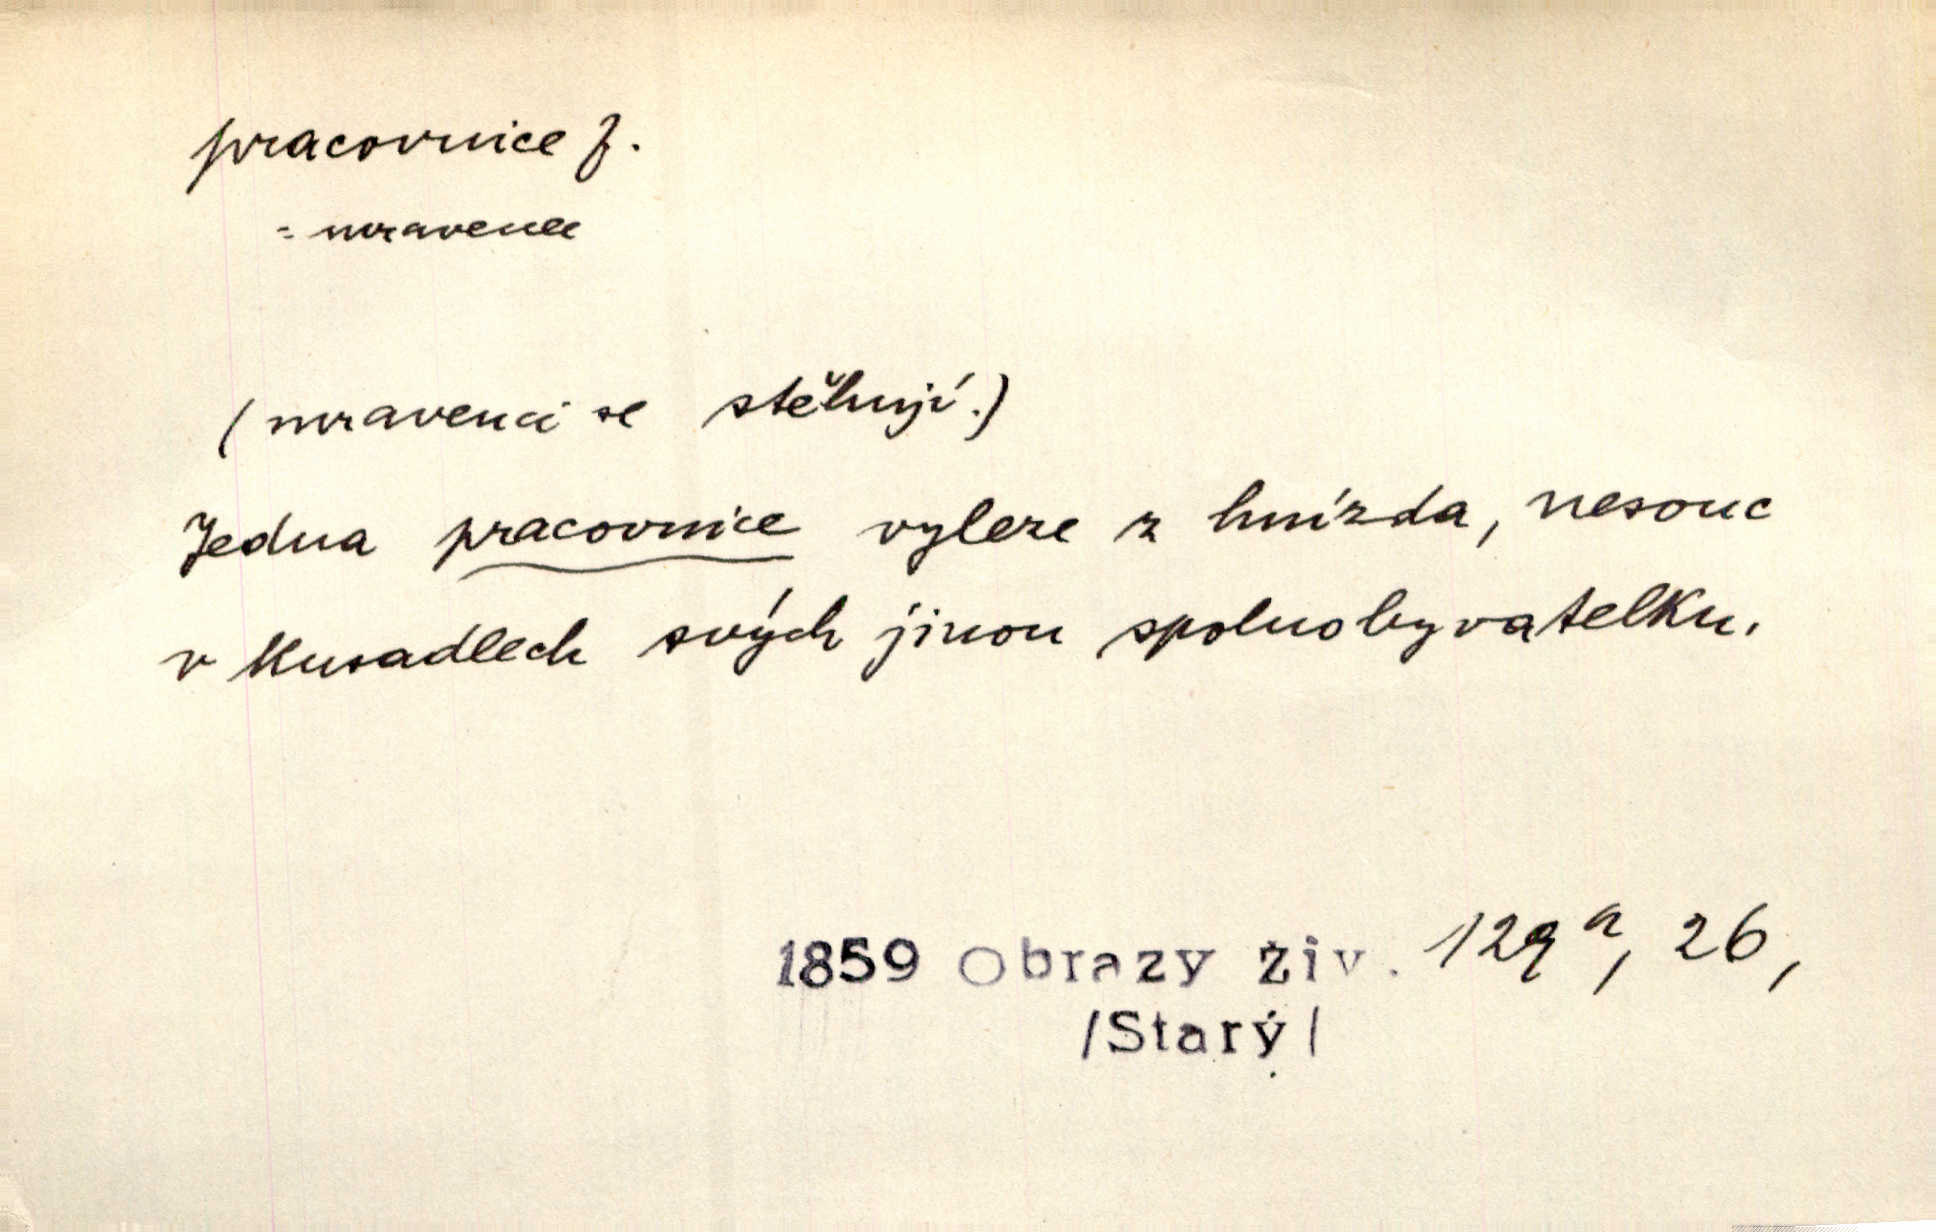 pracovnice f.
= mravenec
(mravenci se stěhují.)
Jedna pracovnice vyleze z hnízda, nesouc
v kusadlech svých jinou spoluobyvatelku.
1859 Obrazy živ. 129 a, 26,
/Starý/